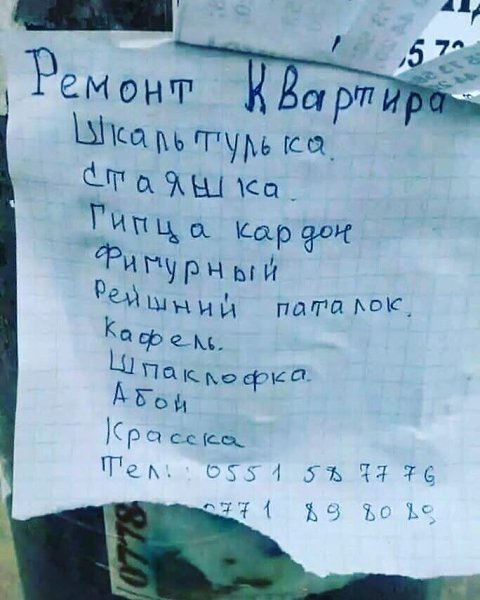 Ремонт Квартира
Шкальтулька.
стаяшка.
Гипца кардон
Фигурный
Рейшний паталок.
Кафель.
Шпаклофка.
Абой
Красска
Тел: 0551 58 77 76
0771 89 80 89
5 7
0778